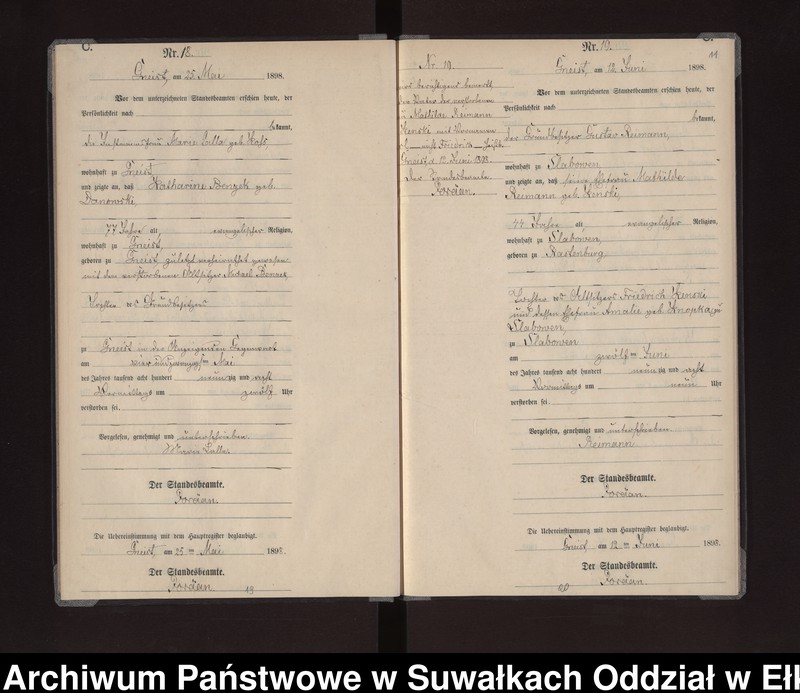 C.
Nr. 18.
Gneist, am 25. Mai 1898.
Vor dem unterzeichneten Standesbeamten erschien heute, der
Persönlichkeit nach
bekannt,
die Instmannsfrau Marie Lalla geb.
wohnhaft zu Gneist
und zeigte an, daß Katharine geb.
Danowski,
77 Jahre alt, evangelischer Religion,
wohnhaft zu Gneist,
geboren zu Gneist, zuletzt verheirathet gewesen
mit dem verstorbenen Altsitzer Michael
Tochter des Grundbesitzers
zu Gneist in der Gegenwart
am vier und zwanzigsten Mai
des Jahres tausend acht hundert neunzig und acht
Vormittags um zwölf Uhr
verstorben sei.
Vorgelesen, genehmigt und unterschrieben.
Marie Lalla.
Der Standesbeamte.
Die Uebereinstimmung mit dem Hauptregister beglaubigt.
Gneist, am 25ten Mai 1898.
Der Standesbeamte.
19
Nr. 19.
wird berichtigend bemerkt,
der Vater der verstorbenen
Mathilde Reimann
mit Vornamen
nicht Friedrich heißt.
Gneist, d. 12. Juni 1898.
Der Standesbeamte.
C.
11
Nr. 19.
Gneist, am 12. Juni 1898.
Vor dem unterzeichneten Standesbeamten erschien heute, der
Persönlichkeit nach
bekannt,
der Grundbesitzer Gustav Reimann,
wohnhaft zu Slabowen
und zeigte an, daß seine Ehefrau Mathilde
Reimann geb.
44 Jahre alt, evangelischer Religion,
wohnhaft zu Slabowen,
geboren zu Rastenburg,
Tochter des Altsitzers Friedrich
und dessen Ehefrau Amalie geb. Knopka zu
Slabowen,
zu Slabowen
am zwölften Juni
des Jahres tausend acht hundert neunzig und acht
Vormittags um neun Uhr
verstorben sei.
Vorgelesen, genehmigt und unterschrieben.
Reimann
Der Standesbeamte.
Die Uebereinstimmung mit dem Hauptregister beglaubigt.
Gneist, am 12ten Juni 1898.
Der Standesbeamte.
20
Archiwum Państwowe w Suwałkach Oddział w Ełk